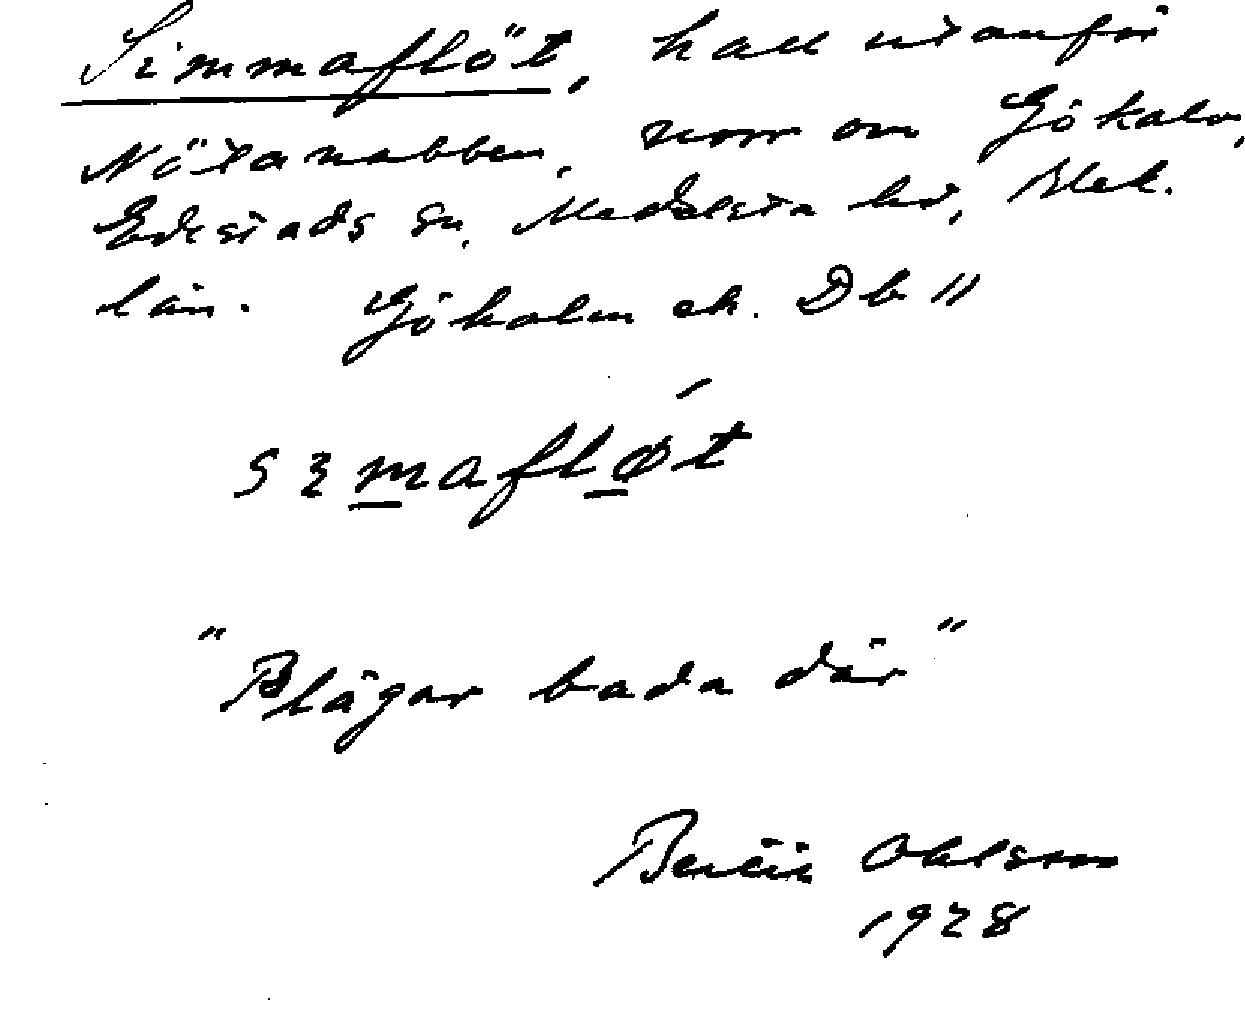 Simmaflöt, hall utanför
Nötanabben, norr om Gökalv,
Edestads sn, Medelsta hd, Blek.
län. Gökalv ek. Db 11
sɜmafløt
"Plägar bada där"
Bertil Ohlsson
1928